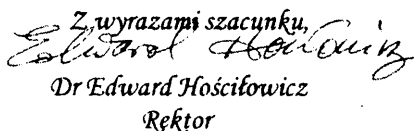 Z wyrazami szacunku,
Edward Hościłowicz
Dr Edward Hościłowicz
Rektor